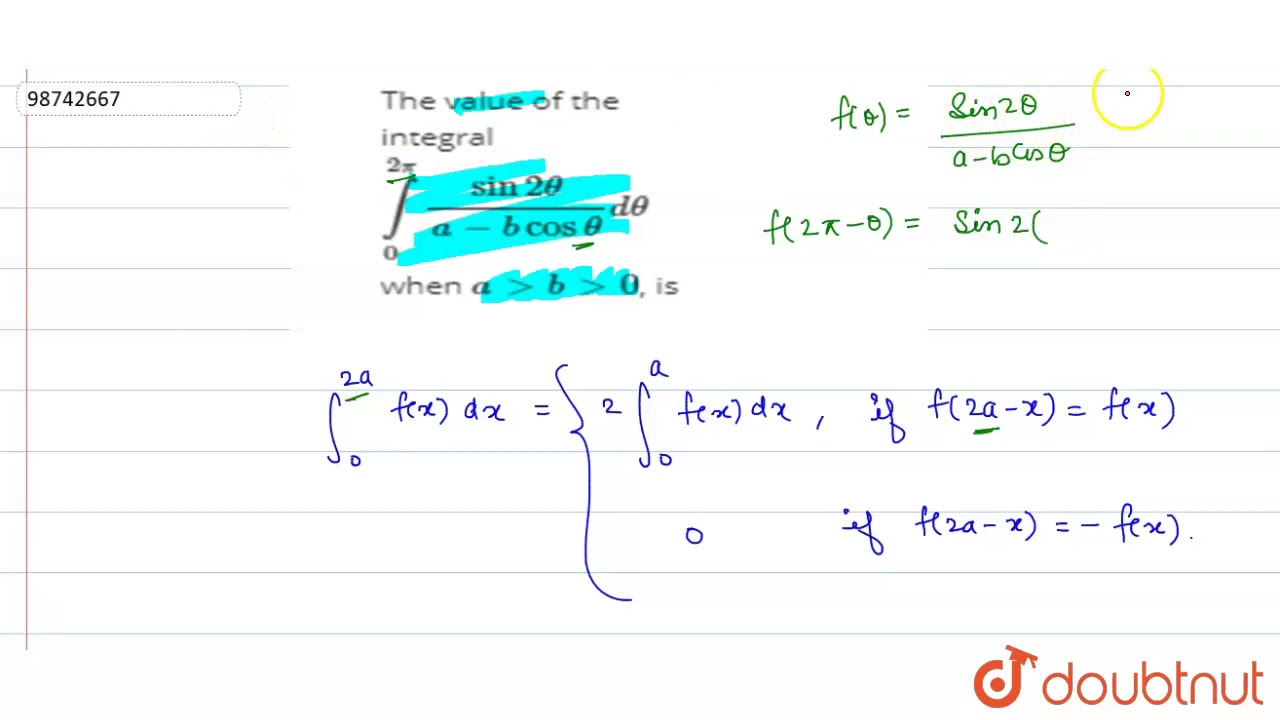 98742667
The value of the
integral
∫₀^{2π} sin 2θ / (a − b cos θ) dθ
when a > b > 0, is
f(θ) = Sin2θ / (a-bCosθ)
f(2π-θ) = Sin2(
∫₀^{2a} f(x) dx = { 2 ∫₀^{a} f(x) dx , if f(2a-x) = f(x)
0 if f(2a-x) = - f(x).
doubtnut